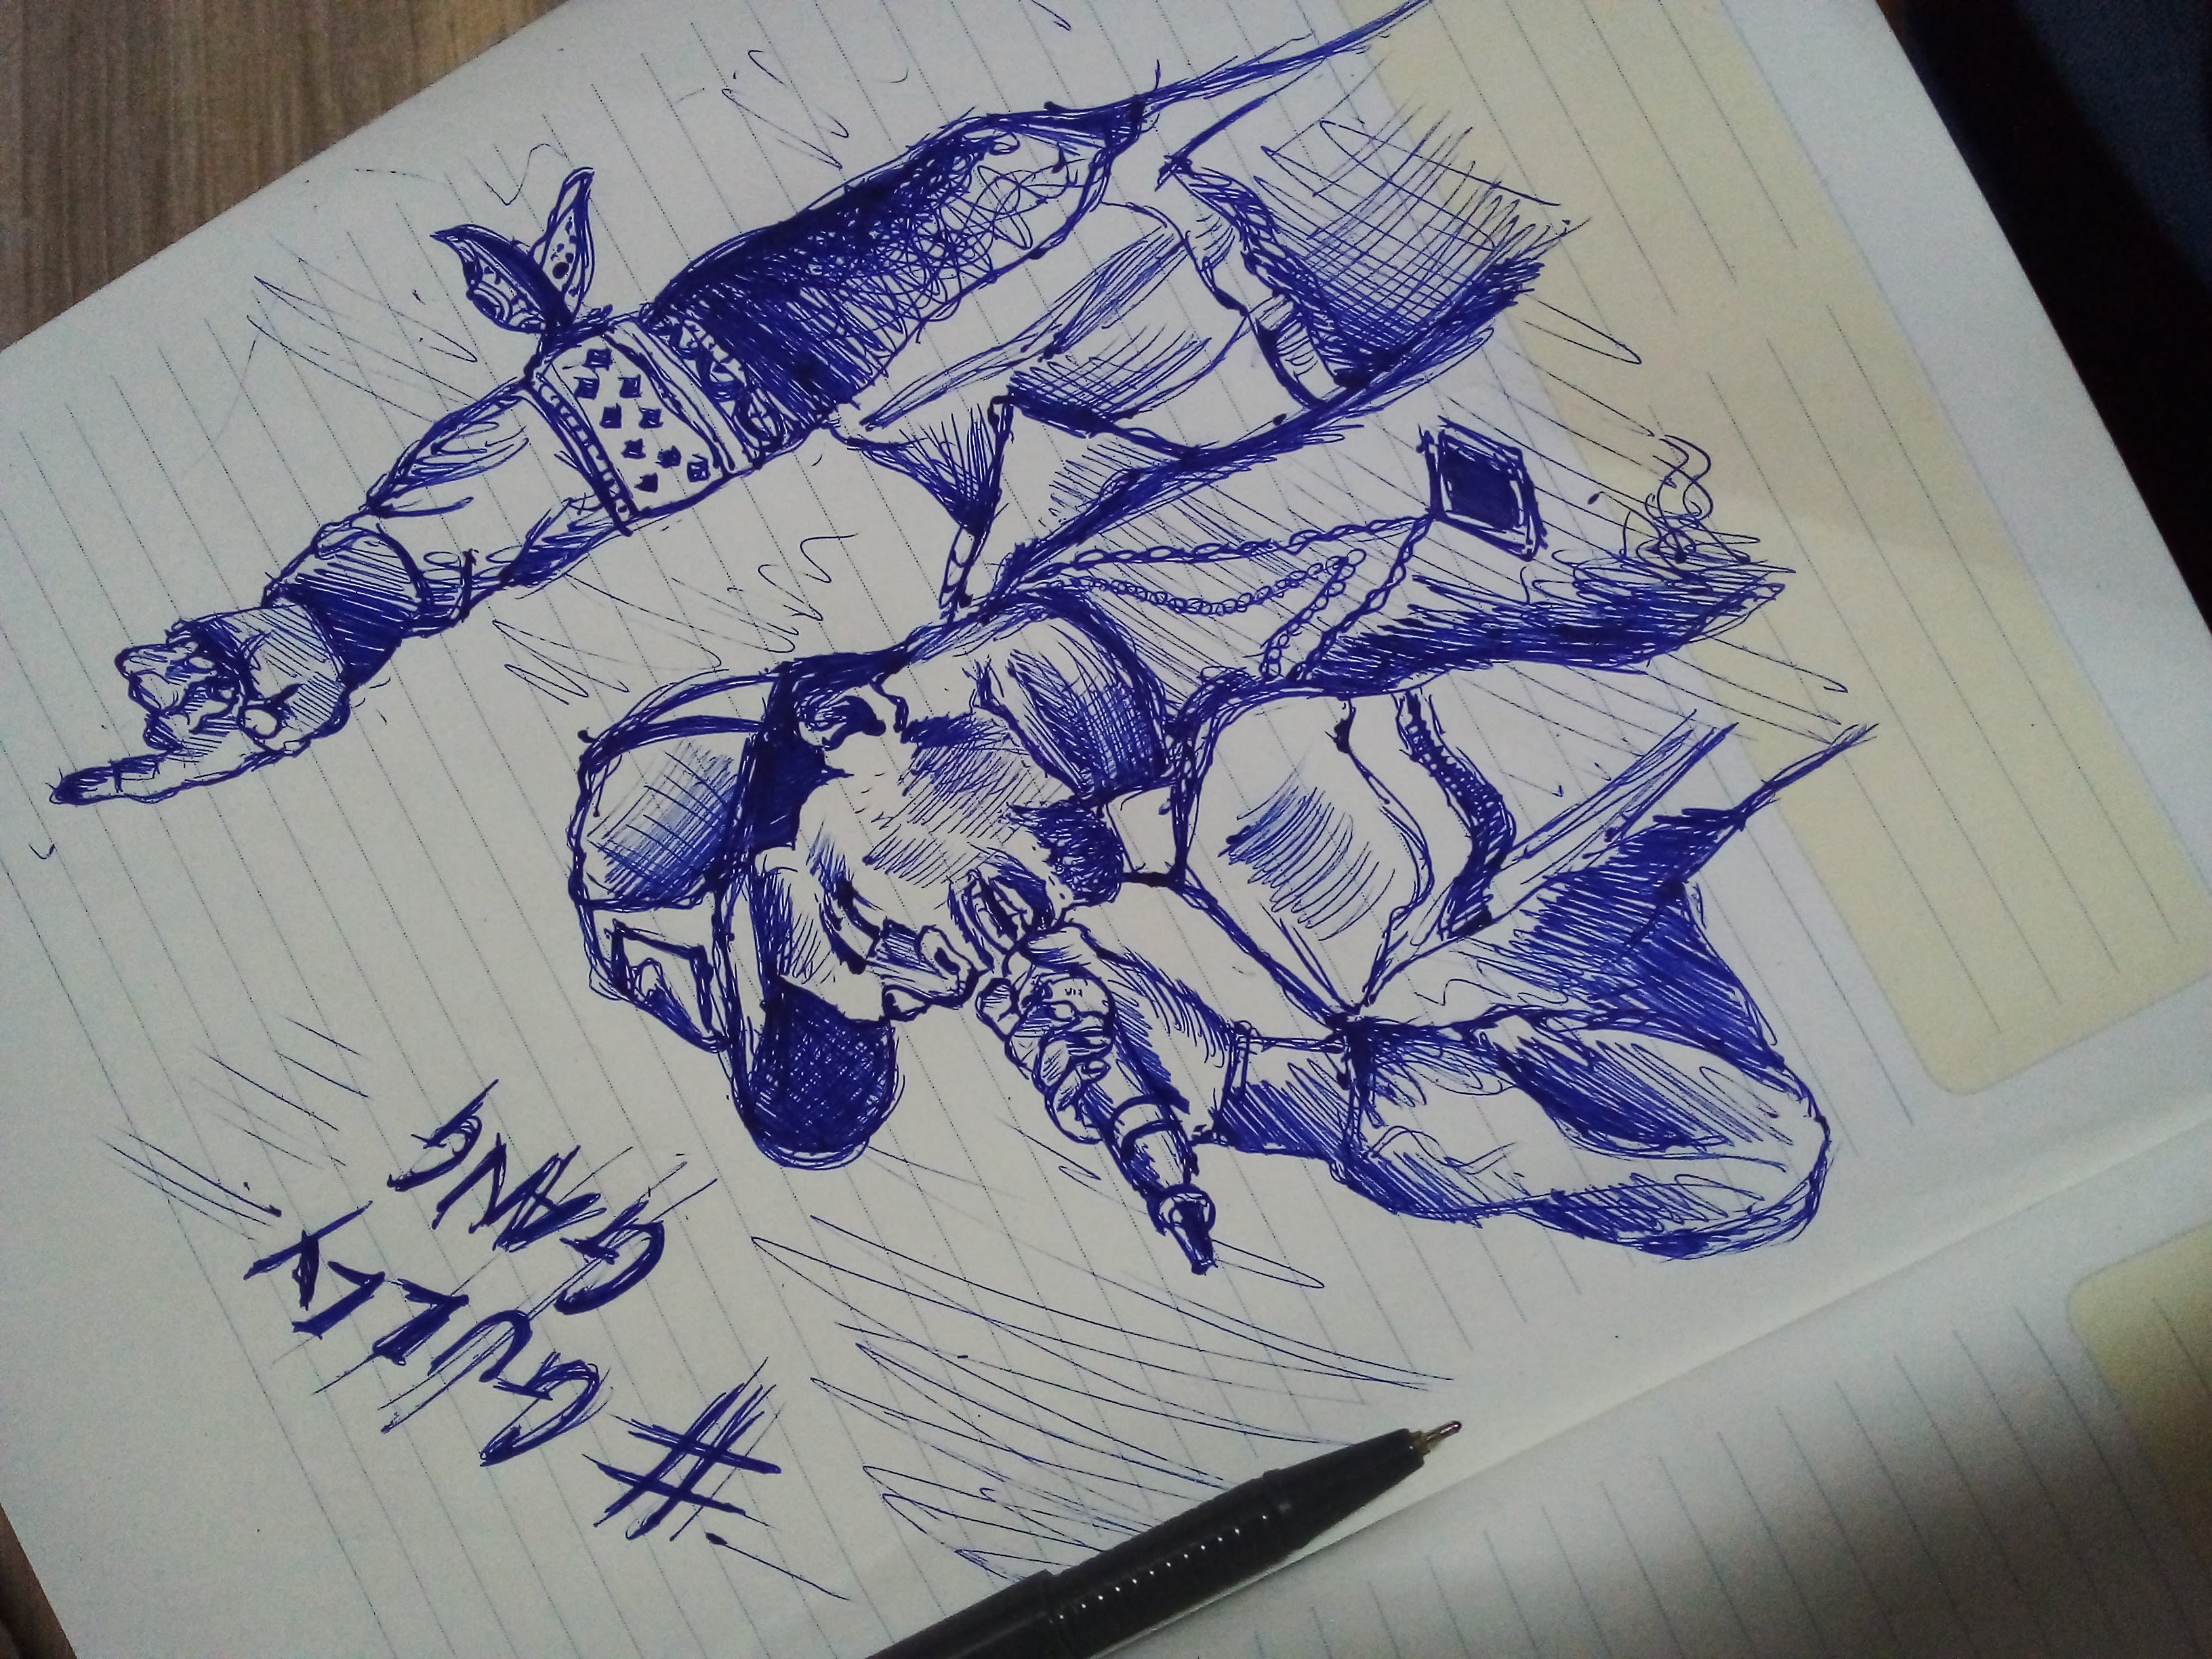 # GULLY
GANG